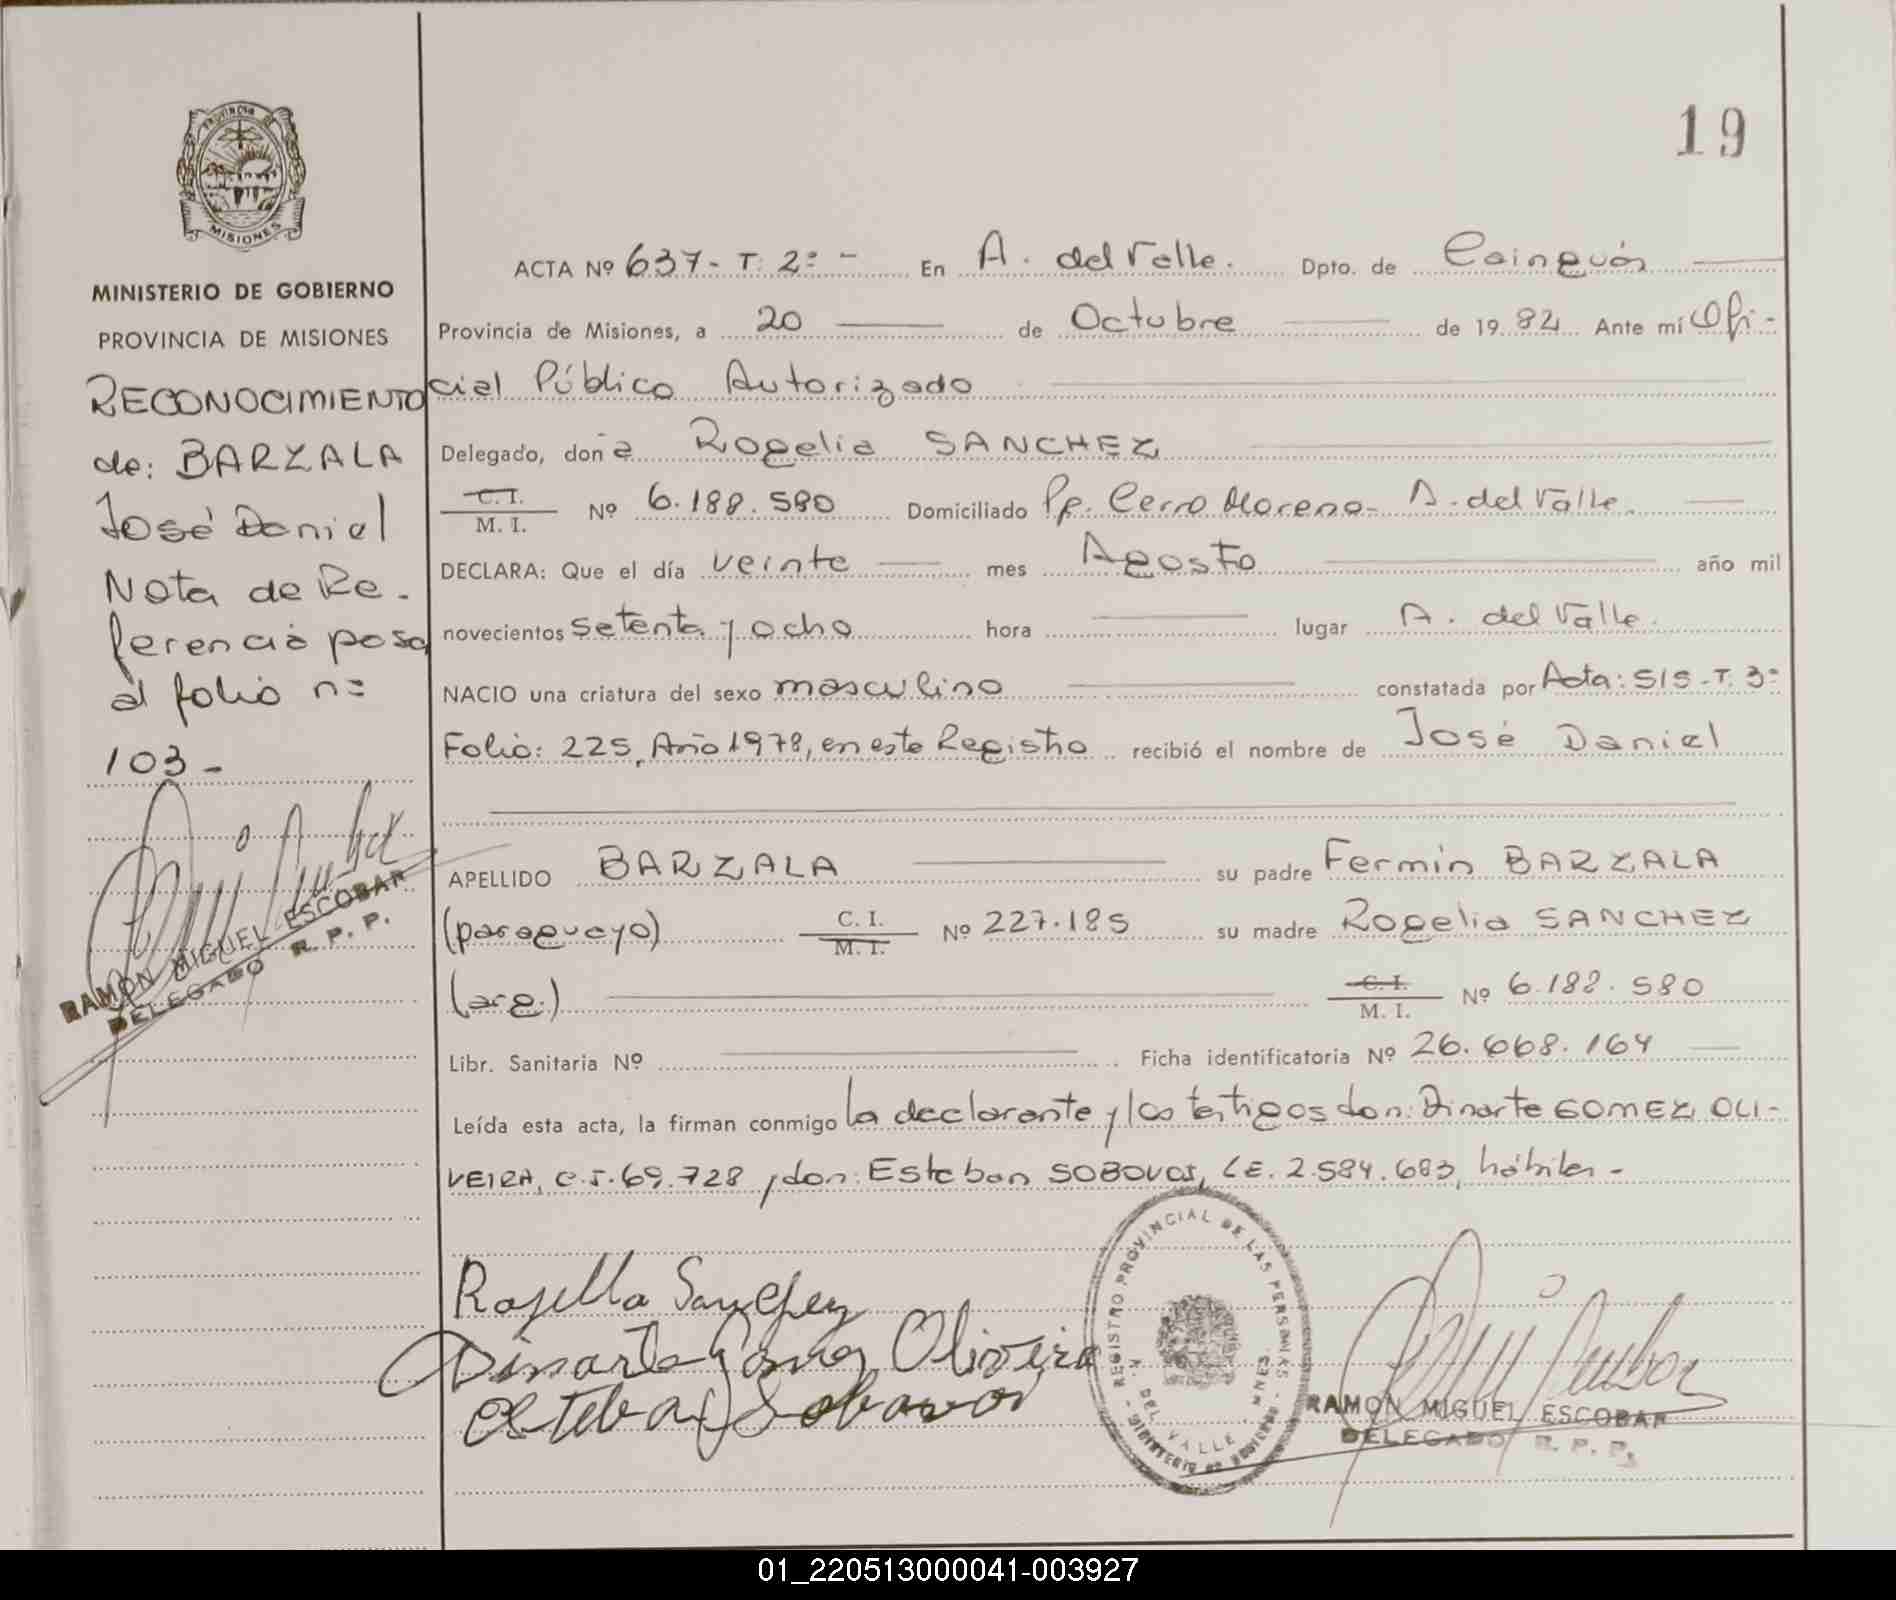 19
PROVINCIA DE
MISIONES
MINISTERIO DE GOBIERNO
PROVINCIA DE MISIONES
RECONOCIMIENTO
de: BARZALA
José Daniel
Nota de Re-
ferencia pasa
al folio nº
103-
RAMON MIGUEL ESCOBAR
DELEGADO R. P. P.
ACTA Nº 637- T. 2º - En A. del Valle. Dpto. de Cainguás
Provincia de Misiones, a 20 de Octubre de 1982 Ante mí Ofi-
cial Público Autorizado
Delegado, doña Rogelia SANCHEZ
C. I.
M. I. Nº 6.188.580 Domiciliado Pp. Cerro Moreno- A. del Valle.
DECLARA: Que el día veinte mes Agosto año mil
novecientos setenta y ocho hora lugar A. del Valle.
NACIO una criatura del sexo masculino constatada por Acta: 515-T. 3º
Folio: 225, Año 1978, en este Registro recibió el nombre de José Daniel
APELLIDO BARZALA su padre Fermín BARZALA
(paraguayo) C. I. M. I. Nº 227.185 su madre Rogelia SANCHEZ
(arg.) C. I. M. I. Nº 6.188.580
Libr. Sanitaria Nº Ficha identificatoria Nº 26.668.164
Leída esta acta, la firman conmigo la declarante y los testigos don: Dinarte GOMEZ OLI-
VEIRA, C.I. 69.728 y don: Esteban SOBOVOI, LE. 2.584.683, hábiles-
Dinarte Gomez Oliveira
REGISTRO PROVINCIAL DE LAS PERSONAS
A. DEL VALLE
RAMON MIGUEL ESCOBAR
DELEGADO R. P. P.
01_220513000041-003927